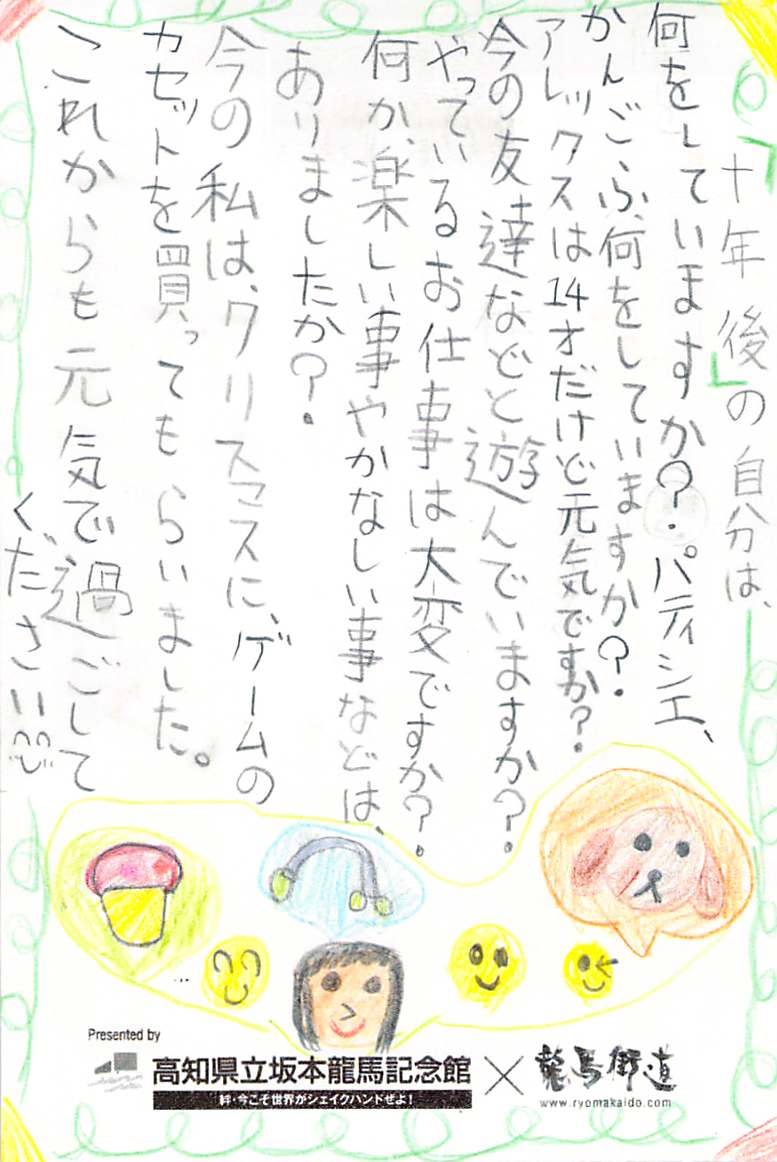 「十年後」の自分は、
何をしていますか?パティシエ、
かんごふ、何をしていますか?
アレックスは14才だけど元気ですか?
今の友達などと遊んでいますか?
やっているお仕事は大変ですか?
何か、楽しい事やかなしい事などは、
ありましたか?
今の私は、クリスマスに、ゲームの
カセットを買ってもらいました。
これからも元気で過ごして
ください
Presented by
高知県立坂本龍馬記念館×龍馬街道
絆・今こそ世界がシェイクハンドぜよ!
www.ryomakaido.com